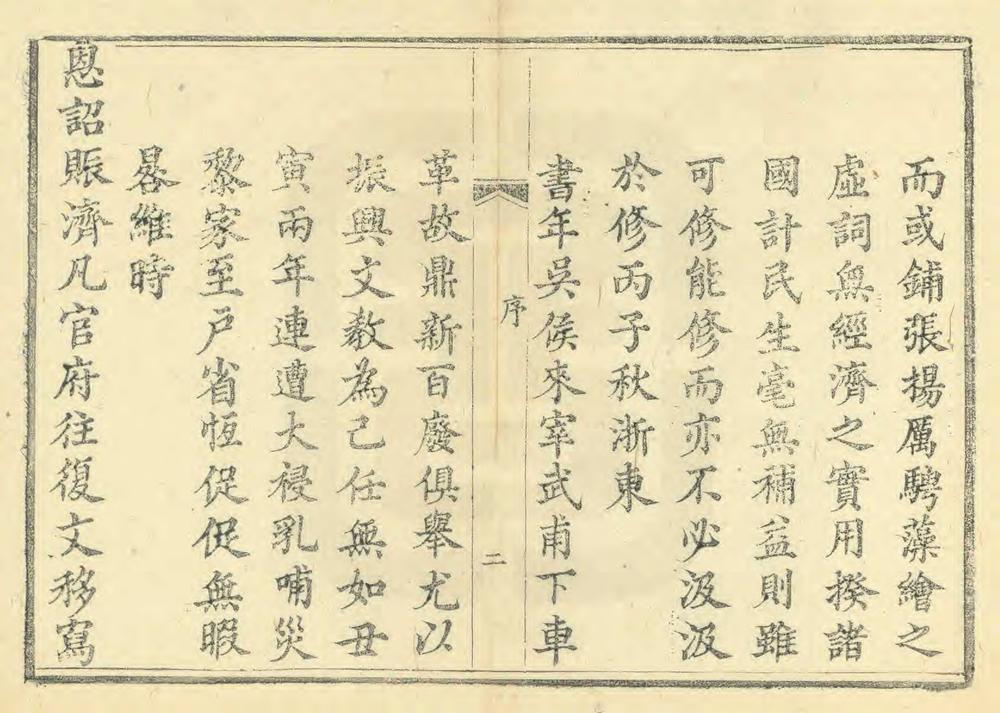 而或鋪張揚厲騁藻繪之
虛詞無經濟之實用揆諸
國計民生毫無補益則雖
可修能修而亦不必汲汲
於修丙子秋浙東
書年吳侯來宰武甫下車
序
二
革故鼎新百廢俱舉尤以
振興文教為己任無如丑
寅兩年連遭大祲乳哺災
黎家至戶省恆促促無暇
晷維時
恩詔賑濟凡官府往復文移寫